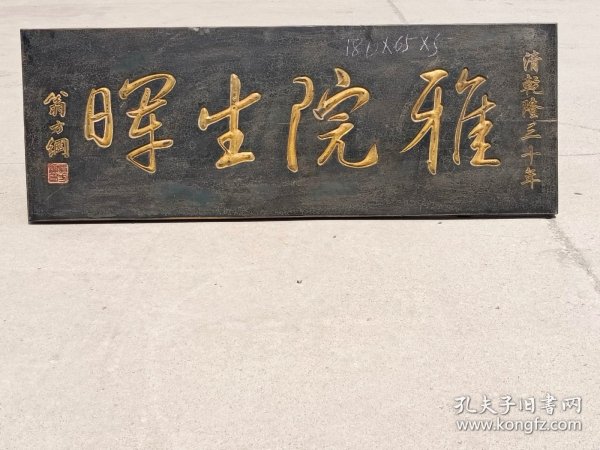 清乾隆三十年
雅院生暉
翁方綱
180X65X5
孔夫子旧書网
www.kongfz.com